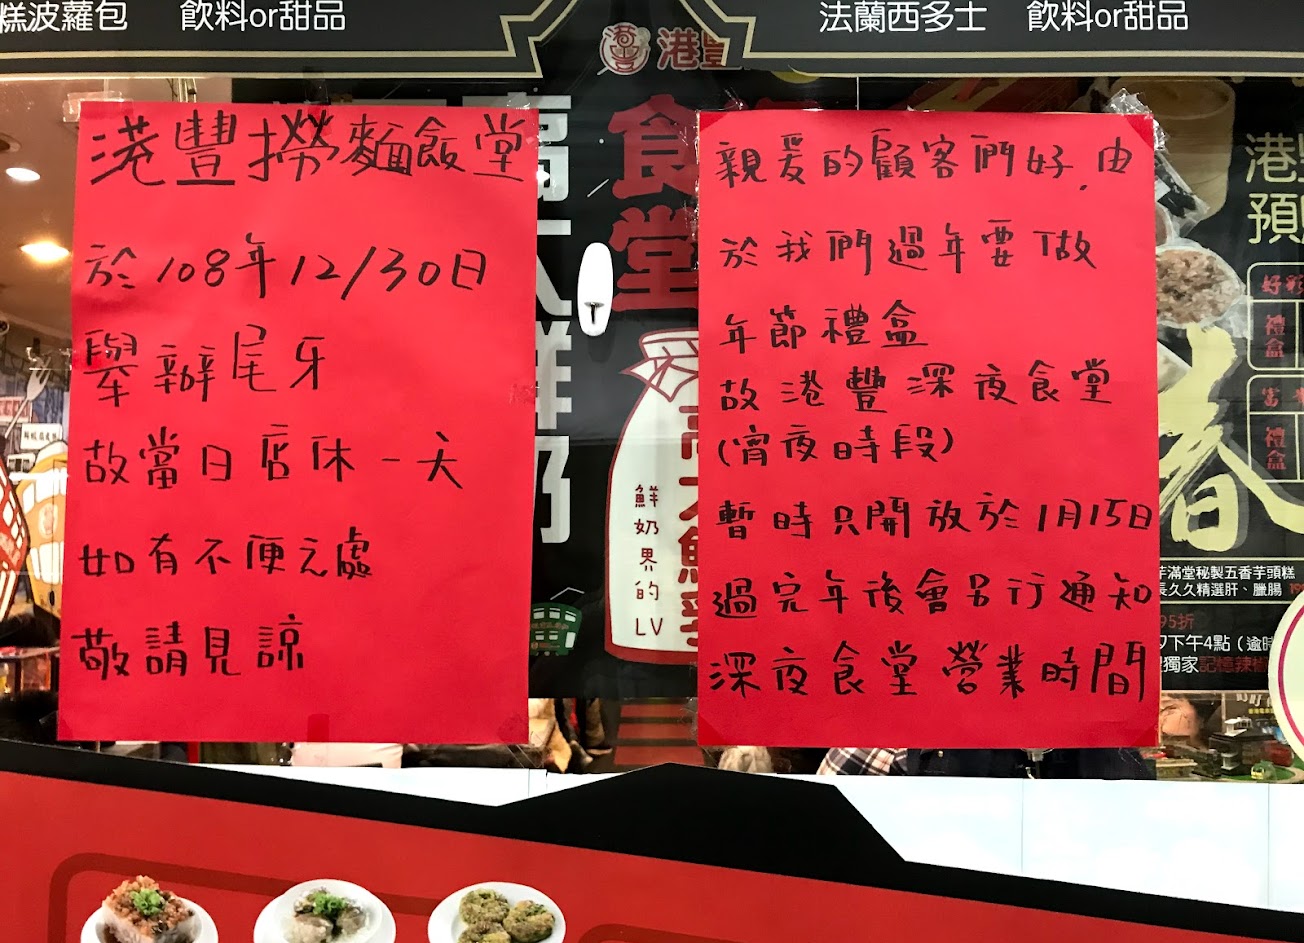 糕波蘿包 飲料or甜品
法蘭西多士 飲料or甜品
港豐
港豐撈麵飯堂
於108年12/30日
舉辦尾牙
故當日店休一天
如有不便之處
敬請見諒
食堂
鮮奶界的LV
親爱的顧客們好,由
於我們過年要做
年節禮盒
故港豐深夜食堂
(宵夜時段)
暫時只開放於1月15日
過完年後會另行通知
深夜食堂營業時間
港
預
禮盒
禮盒
春
芋滿堂秘製五香芋頭糕
長久久精選肝、臘腸
95折
下午4點
獨家記憶辣椒